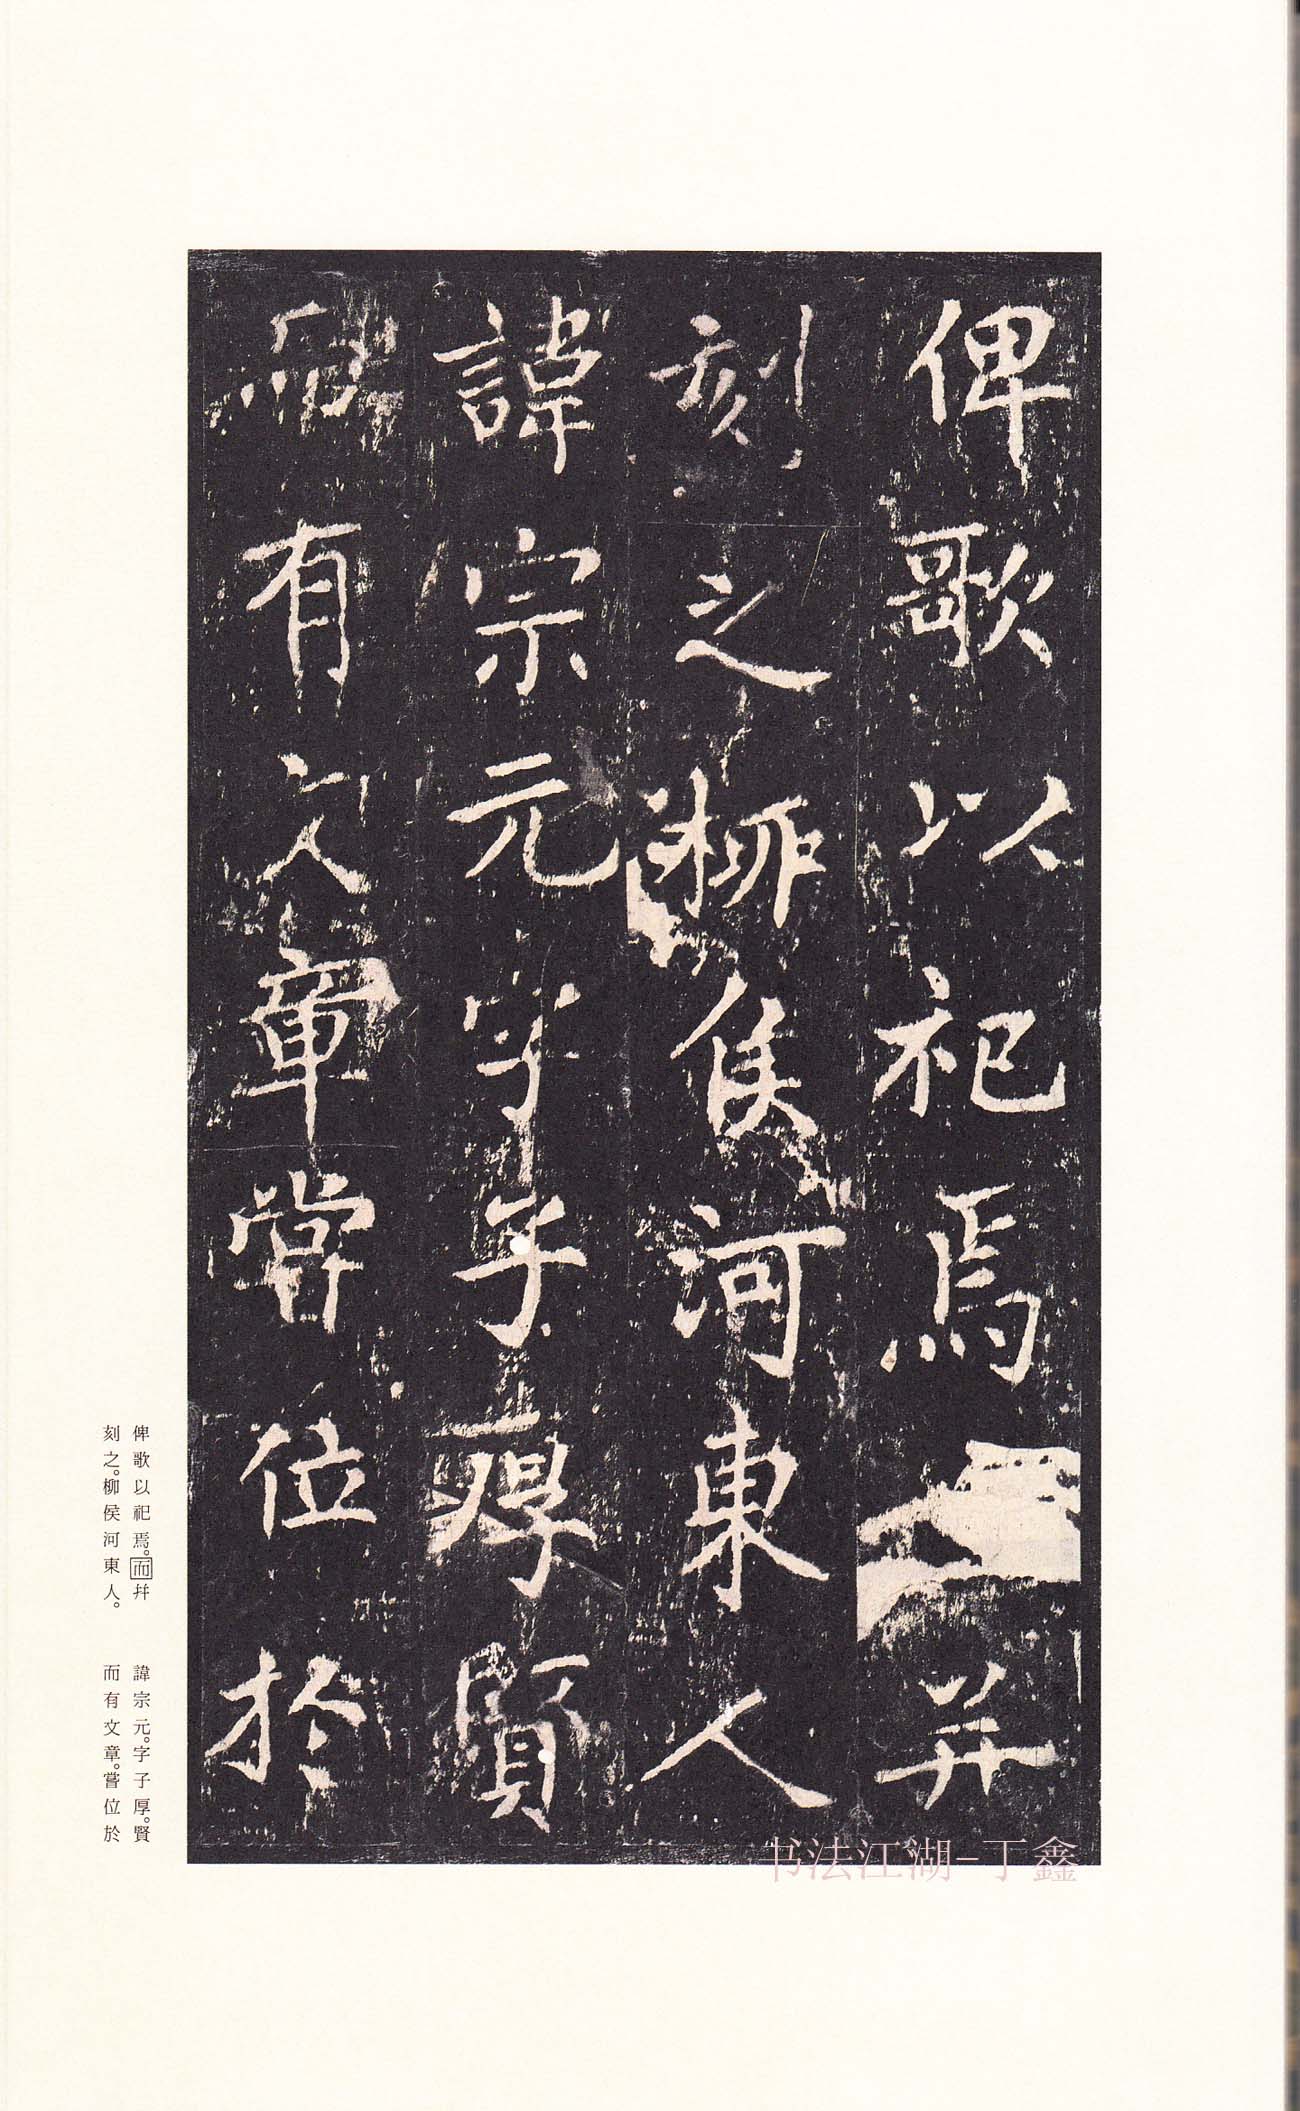 俾歌以祀焉并
刻之柳侯河東人
諱宗元字子厚賢
而有文章嘗位於
俾歌以祀焉。而幷
刻之。柳侯河東人。
諱宗元。字子厚。賢
而有文章。嘗位於
书法江湖-丁鑫